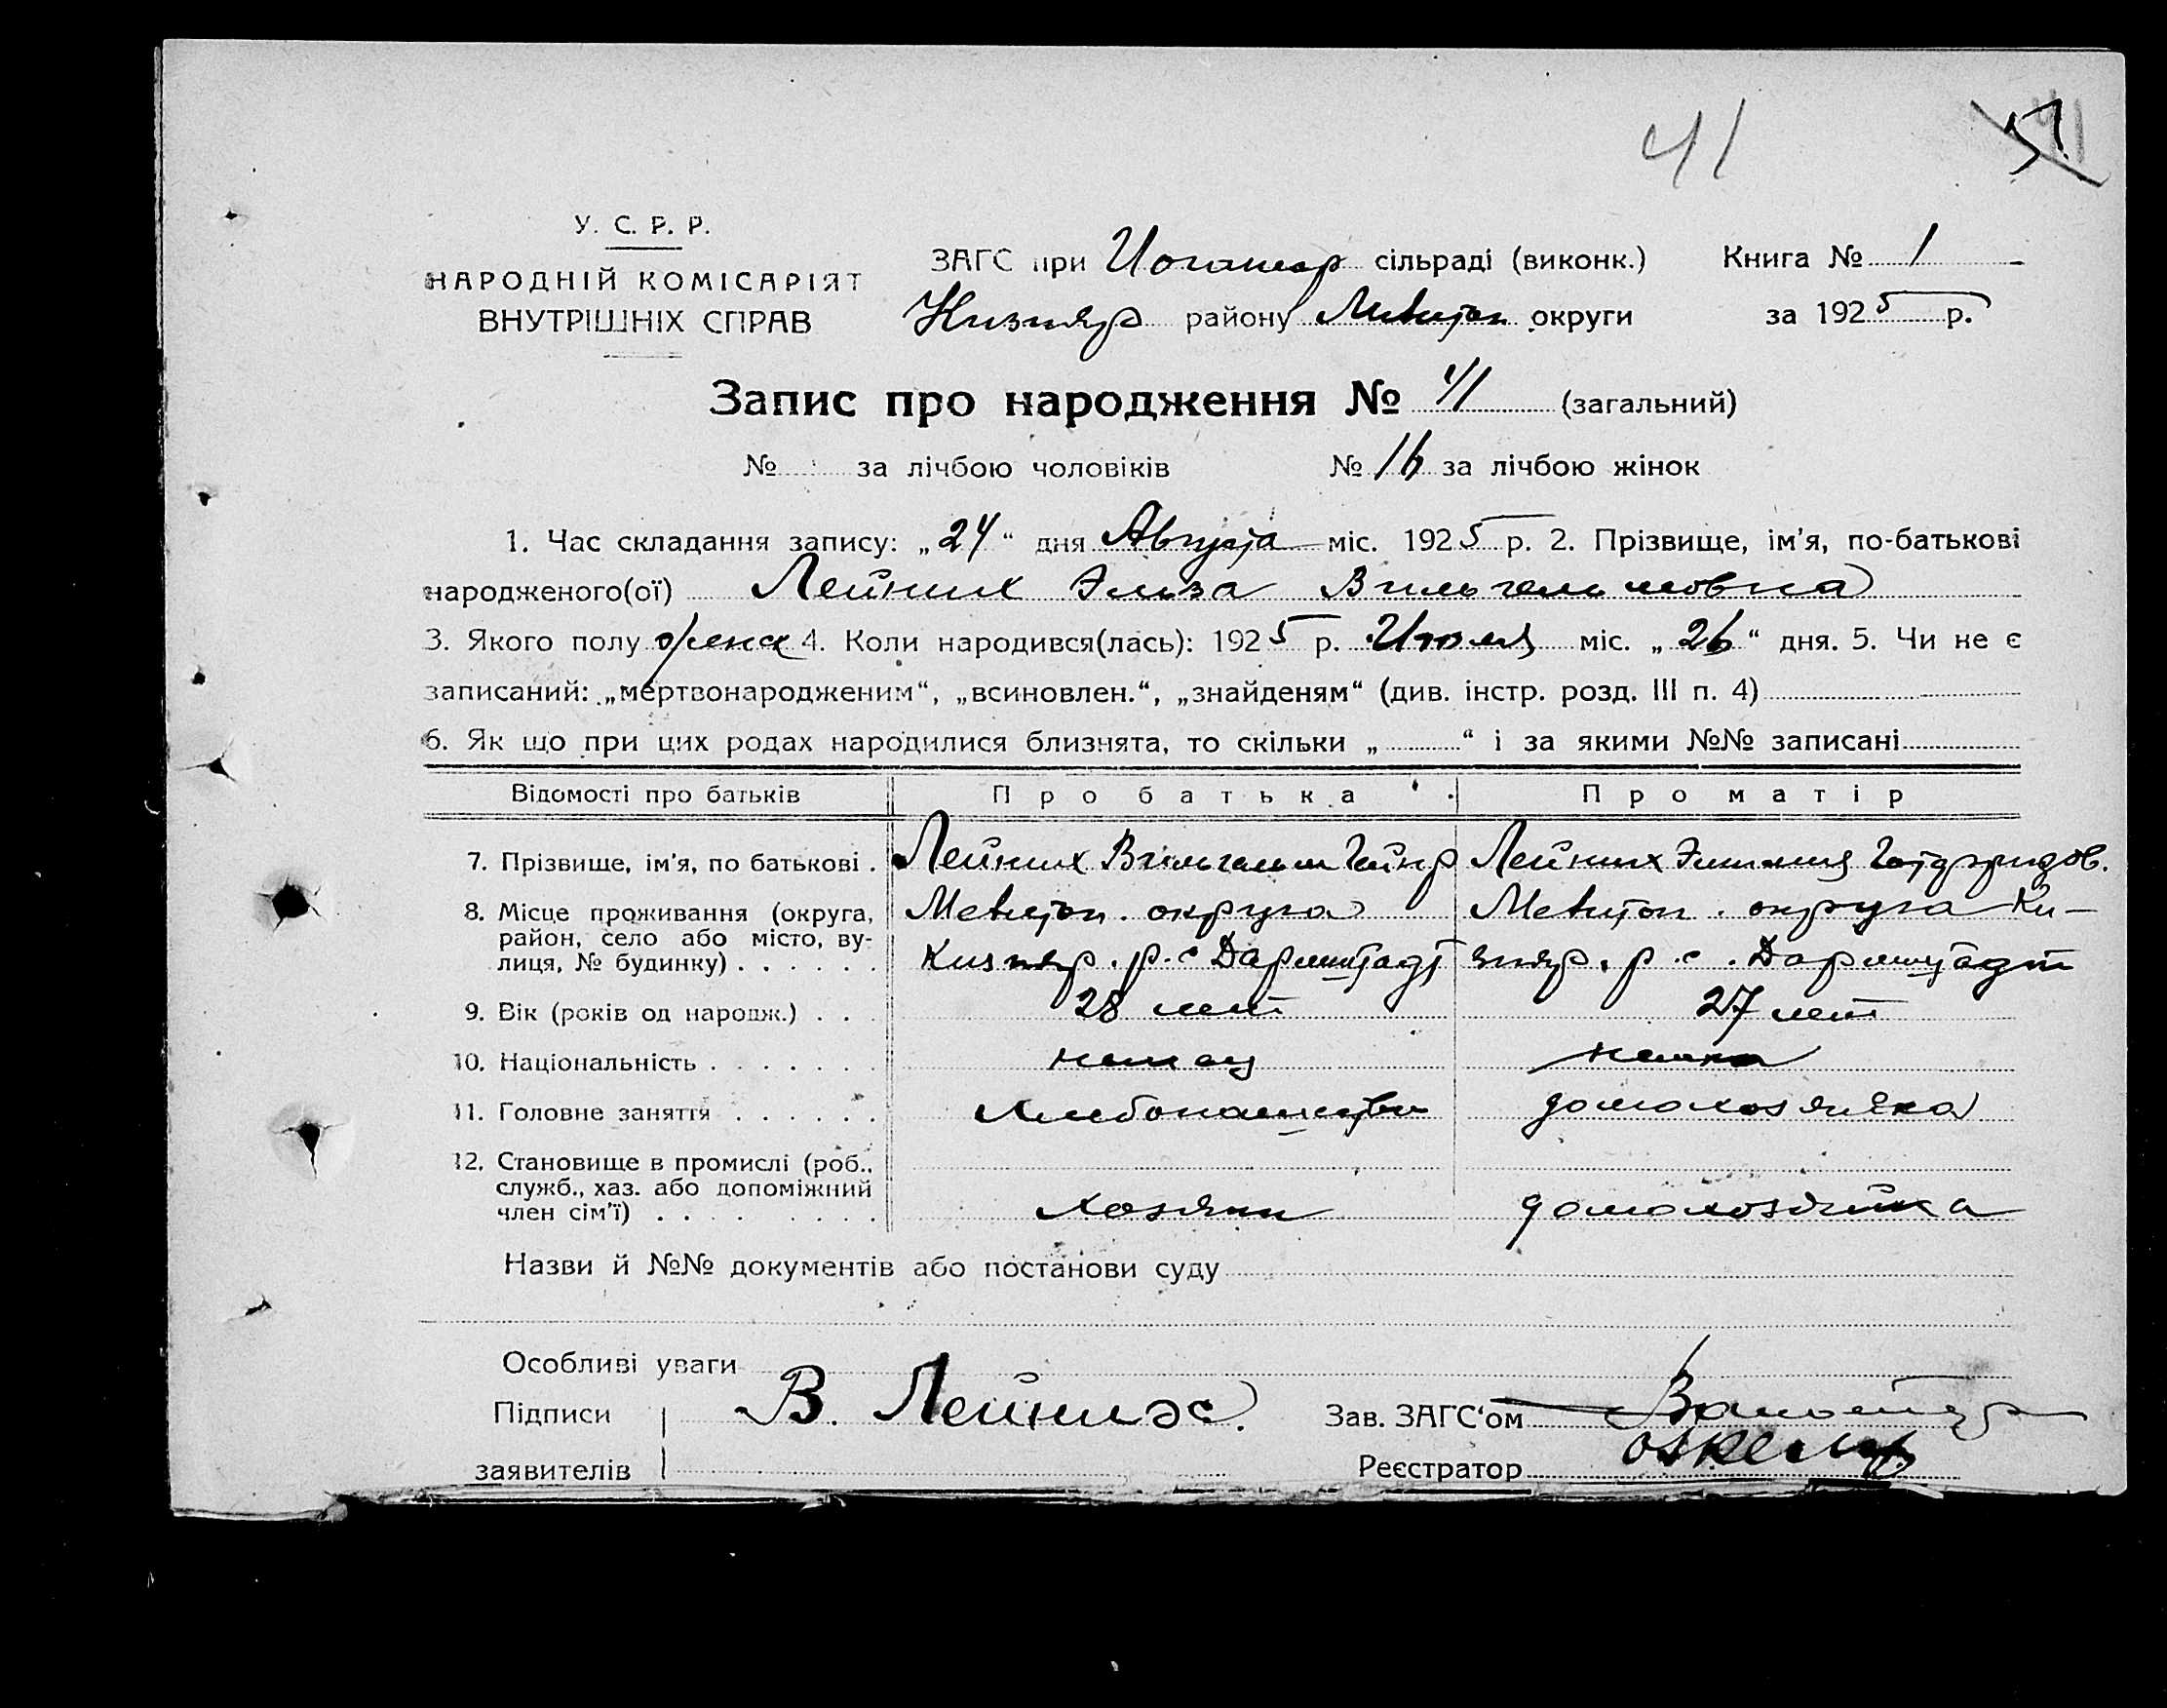 41
У. С. Р. Р.
НАРОДНІЙ КОМІСАРІЯТ
ВНУТРІШНІХ СПРАВ
ЗАГС при сільраді (виконк.) Книга № 1
району Мелитоп округи за 1925 р.
Запис про народження № 41 (загальний)
№ за лічбою чоловіків № 16 за лічбою жінок
1. Час складання запису: „24“ дня Августа міс. 1925 р. 2. Прізвище, ім'я, по-батькові
народженого(ої) Лейних Эльза Вильгельмовна
3. Якого полу женск 4. Коли народився(лась): 1925 р. Июля міс. „26“ дня. 5. Чи не є
записаний: „мертвонародженим“, „всиновлен.“, „знайденям“ (див. інстр. розд. III п. 4)
6. Як що при цих родах народилися близнята, то скільки „ “ і за якими №№ записані
Відомості про батьків Про батька Про матір
7. Прізвище, ім'я, по батькові . Лейних Вильгельм Гейнр Лейних Эмилия Готдфридов.
8. Місце проживання (округа, Мелитоп. округа Мелитоп. округа Ки-
район, село або місто, ву- Кизияр. р. с Дармштадт зияр. р. с. Дармштадт
лиця, № будинку) . . . . . .
9. Вік (років од народж.) . . . 28 лет 27 лет
10. Національність . . . . . . . немец немка
11. Головне заняття . . . . . . Хлебопашество домохозяйка
12. Становище в промислі (роб.,
служб., хаз. або допоміжний
член сім'ї) . . . . . . . . хозяин домохозяйка
Назви й №№ документів або постанови суду
Особливі уваги
Підписи В. Лейних. Зав. ЗАГС'ом
заявителів Реєстратор